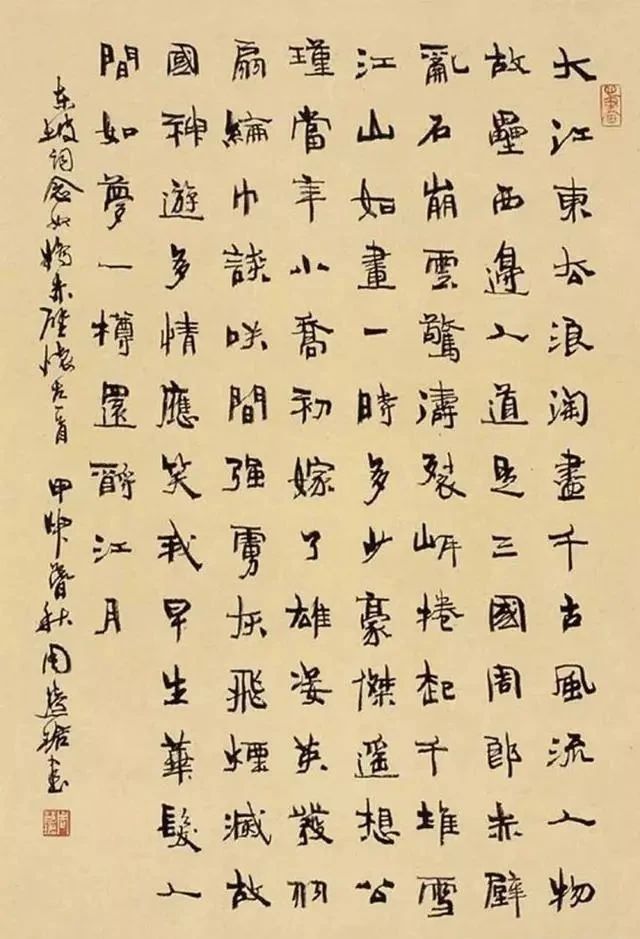 大江東去浪淘盡千古風流人物
故壘西邊人道是三國周郎赤壁
亂石崩雲驚濤裂岸捲起千堆雪
江山如畫一時多少豪傑遙想公
瑾當年小喬初嫁了雄姿英發羽
扇綸巾談咲間强虜灰飛煙滅故
國神遊多情應笑我早生華髮人
間如夢一樽還酹江月
东坡詞念奴嬌赤壁懷古一首 甲申暮秋周慧珺書